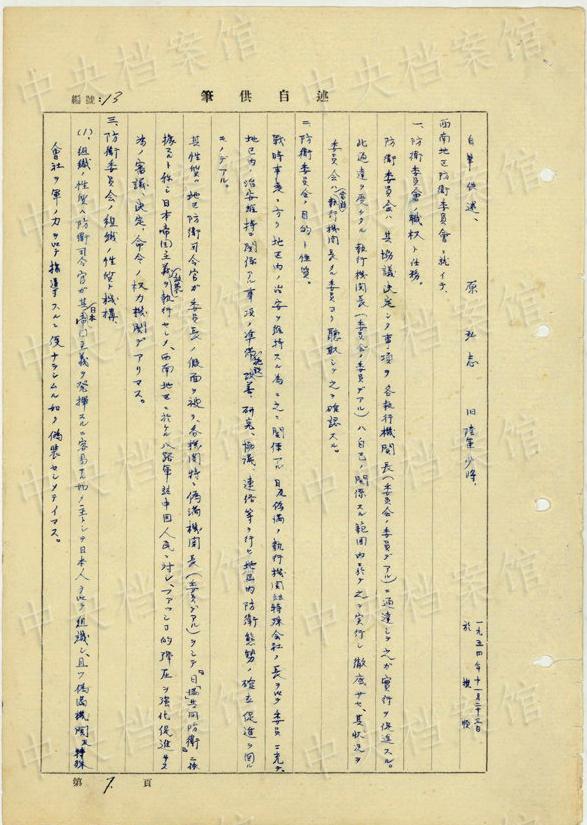 中央档案馆
編號:13
述自供筆
自筆供述、 原 弘志 旧陸軍少将、
一九五四年十一月二十二日
於 撫順
西南地区防衛委員會ニ就イテ、
一、防衛委員會ノ職权ト任務。
防衛委員会ハ其協議決定シタ事項ヲ各執行機関長(委員会ノ委員デアル)ニ通達シテ之ガ實行ヲ促進スル。
此通達ヲ受ケタル執行機関長(委員会ノ委員デアル)ハ自己ノ関係スル範囲内ニ於テ之ヲ実行シ徹底サセ、其状況ヲ
委員会ハ執行機関長タル委員ヨリ聴取シテ之ヲ確認スル。
二、防衛委員会ノ目的ト性質。
戦時事変ニ方リ地区内ノ治安ヲ維持スル為ニ之ニ関係アル日及偽満ノ執行機関並特殊会社ノ長ヲ以テ委員ニ充テ、
地区内ノ治安維持ニ関係アル事項ノ準備、改善、研究、協議、連絡等ヲ行ヒ地区内防衛態勢ノ確立促進ヲ図ル
モノデアル。
其性質ハ地区防衛司令官ガ委員長ノ假面ヲ被リ、各機関特ニ偽満機関長(委員デアル)ヲシテ「日満共同防衛」ニ依
據スルト称シ日本帝国主義ヲ執行セシメ、西南地区ニ於ケル八路軍並中国人民ニ対シ、ファッショ的弾圧ヲ強化促進サス
為ノ審議、決定、命令ノ权力機関デアリマス。
三、防衛委員会ノ組織ノ性質ト機構。
(1)、組織ノ性質ハ防衛司令官ガ其日本帝国主義ヲ発揮スルニ容易ナ如ク主トシテ日本人ヲ以テ組織シ、且ツ偽満機関及特殊
會社ヲ軍ノ力ヲ以テ指導スルニ便ナラシムル如ク偽装セシメテイマス。
第 1. 頁